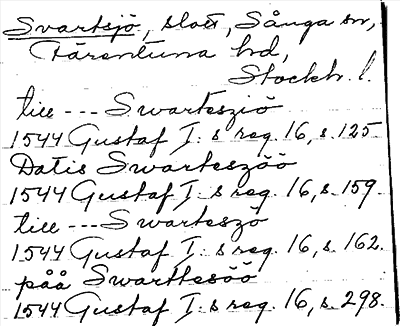 Svartsjö, slott, Sånga sn,
Färentuna hd,
Stockh. l.
till --- Swartesziö
1544 Gustaf I:s reg. 16, s. 125
Datis Swarteszöö
1544 Gustaf I:s reg. 16, s. 159.
till --- Swarteszö
1544 Gustaf I:s reg. 16, s. 162.
påå Swarttesöö
1544 Gustaf I:s reg. 16, s. 298.